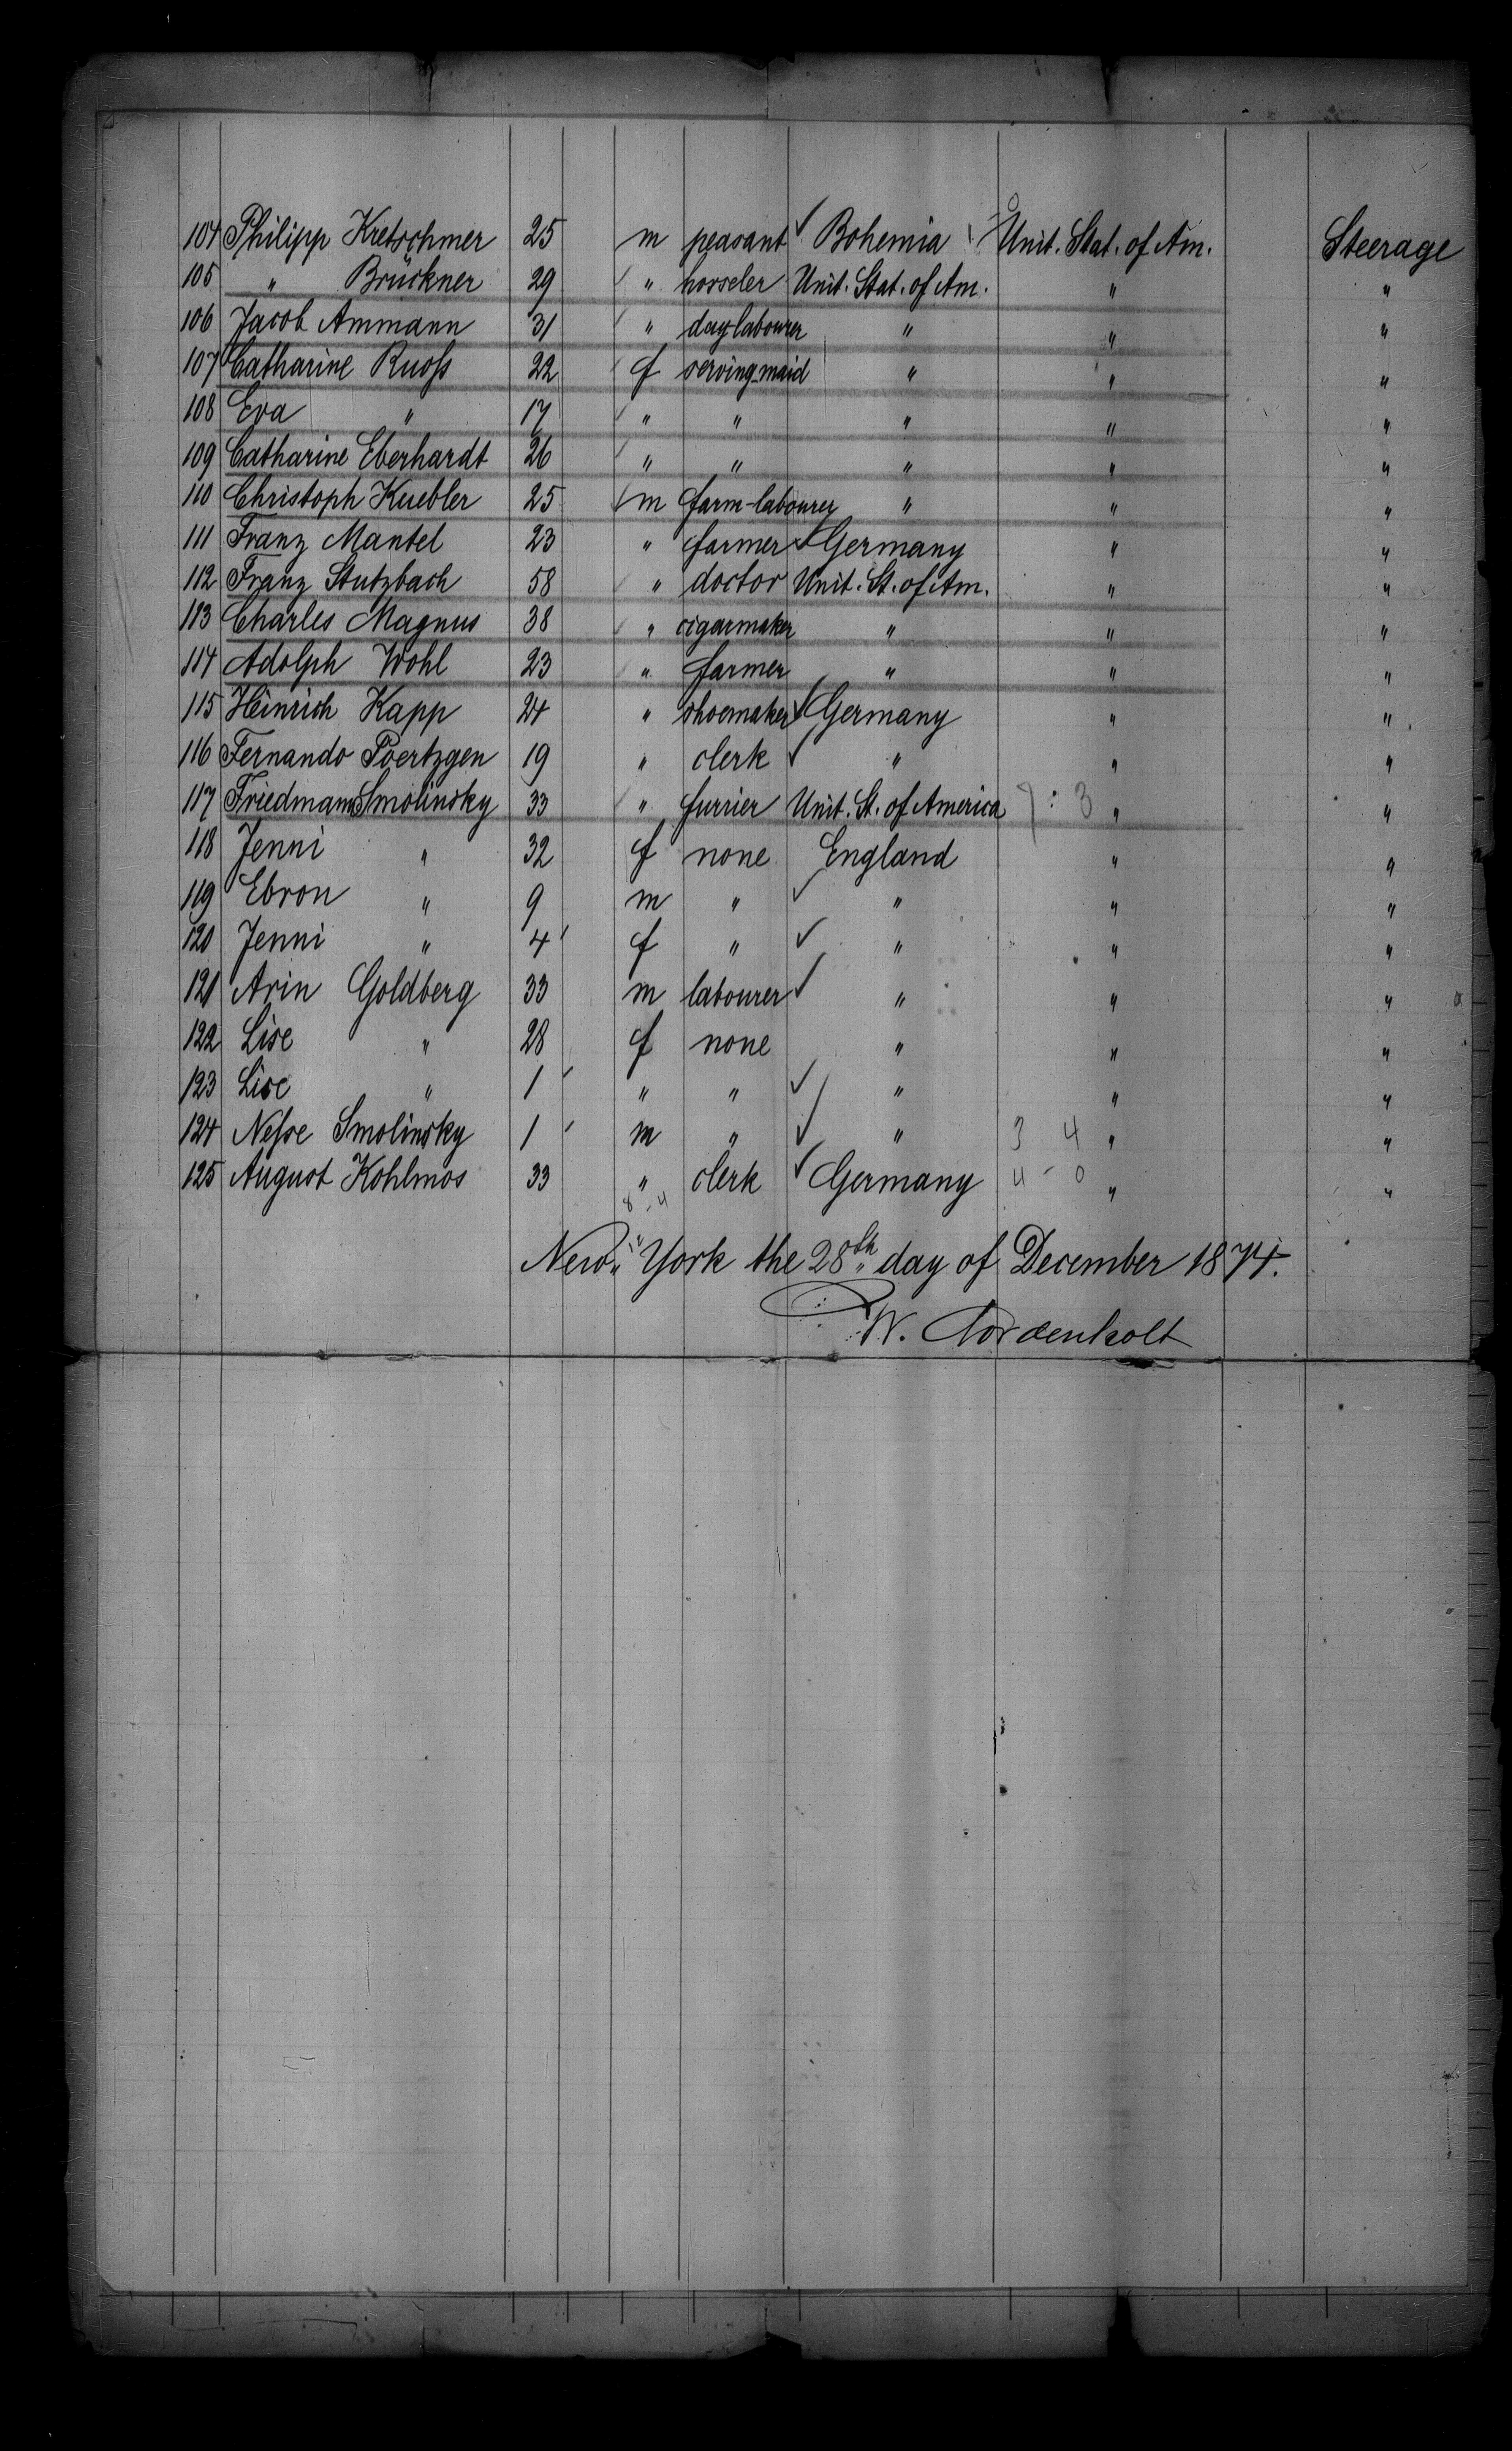 104 Philipp Kretschmer 25 m peasant Bohemia Unit. Stat. of Am. Steerage
105 " Brückner 29 " Unit. Stat. of Am. " "
106 Jacob Ammann 31 " daylabourer " " "
107 Catharine Ruoſs 22 f serving-maid " " "
108 Eva " 17 " " " " "
109 Catharine Eberhardt 26 " " " " "
110 Christoph Kuebler 25 m farm-labourer " " "
111 Franz Mantel 23 " farmer Germany " "
112 Franz Stutzbach 58 " doctor Unit. St. of Am. " "
113 Charles Magnus 38 " cigarmaker " " "
114 Adolph Wohl 23 " farmer " " "
115 Heinrich Kapp 24 " shoemaker Germany " "
116 Fernando Poertzgen 19 " clerk " " "
117 Friedmann Smolinsky 33 " furrier Unit. St. of America " "
118 Jenni " 32 f none England " "
119 Ebron " 9 m " " " "
120 Jenni " 4 f " " " "
121 Arin Goldberg 33 m labourer " " "
122 Lise " 28 f none " " "
123 Lise " 1 " " " " "
124 Neſse Smolinsky 1 m " " 3 4 " "
125 August Kohlmos 33 " clerk Germany 4 - 0 " "
8 - 4
New-York the 28th day of December 1874.
W.